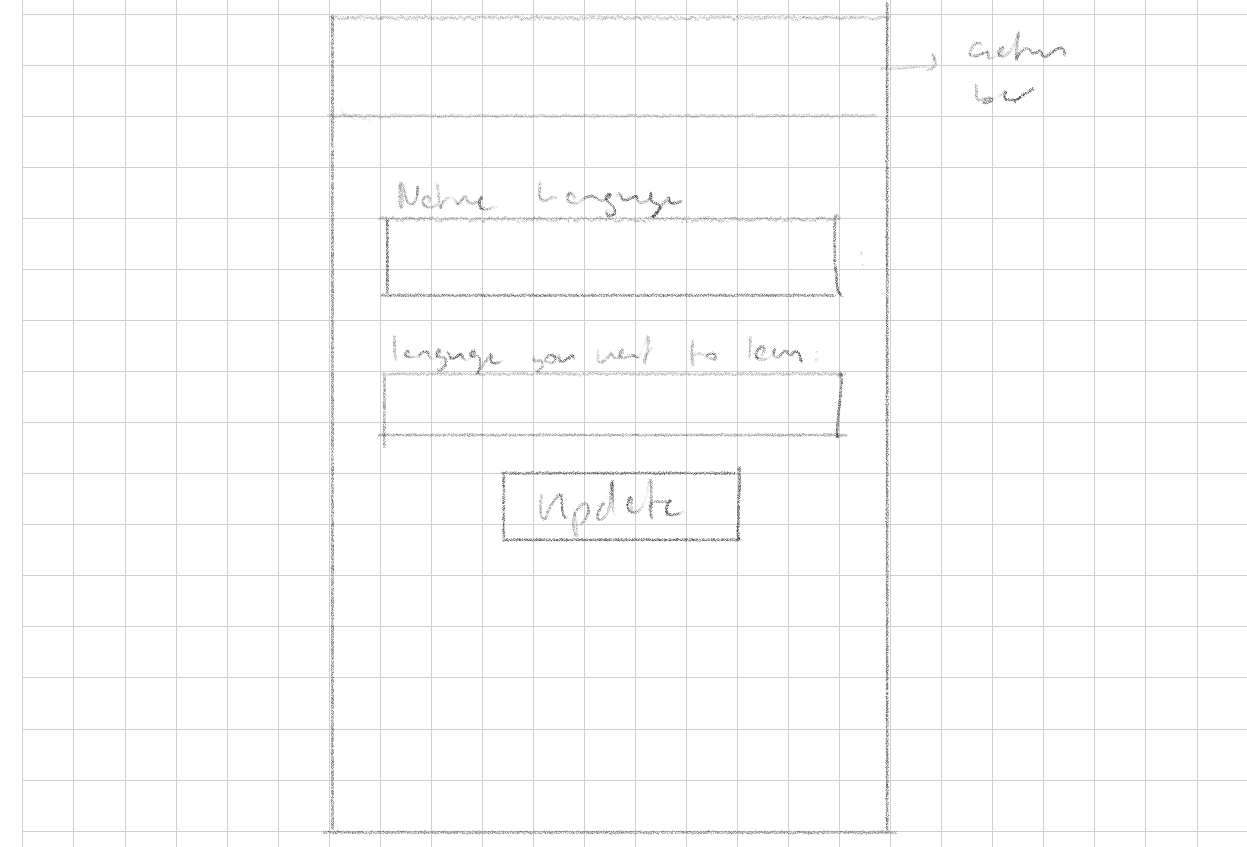 action
bar
Native Language
language you want to learn:
update